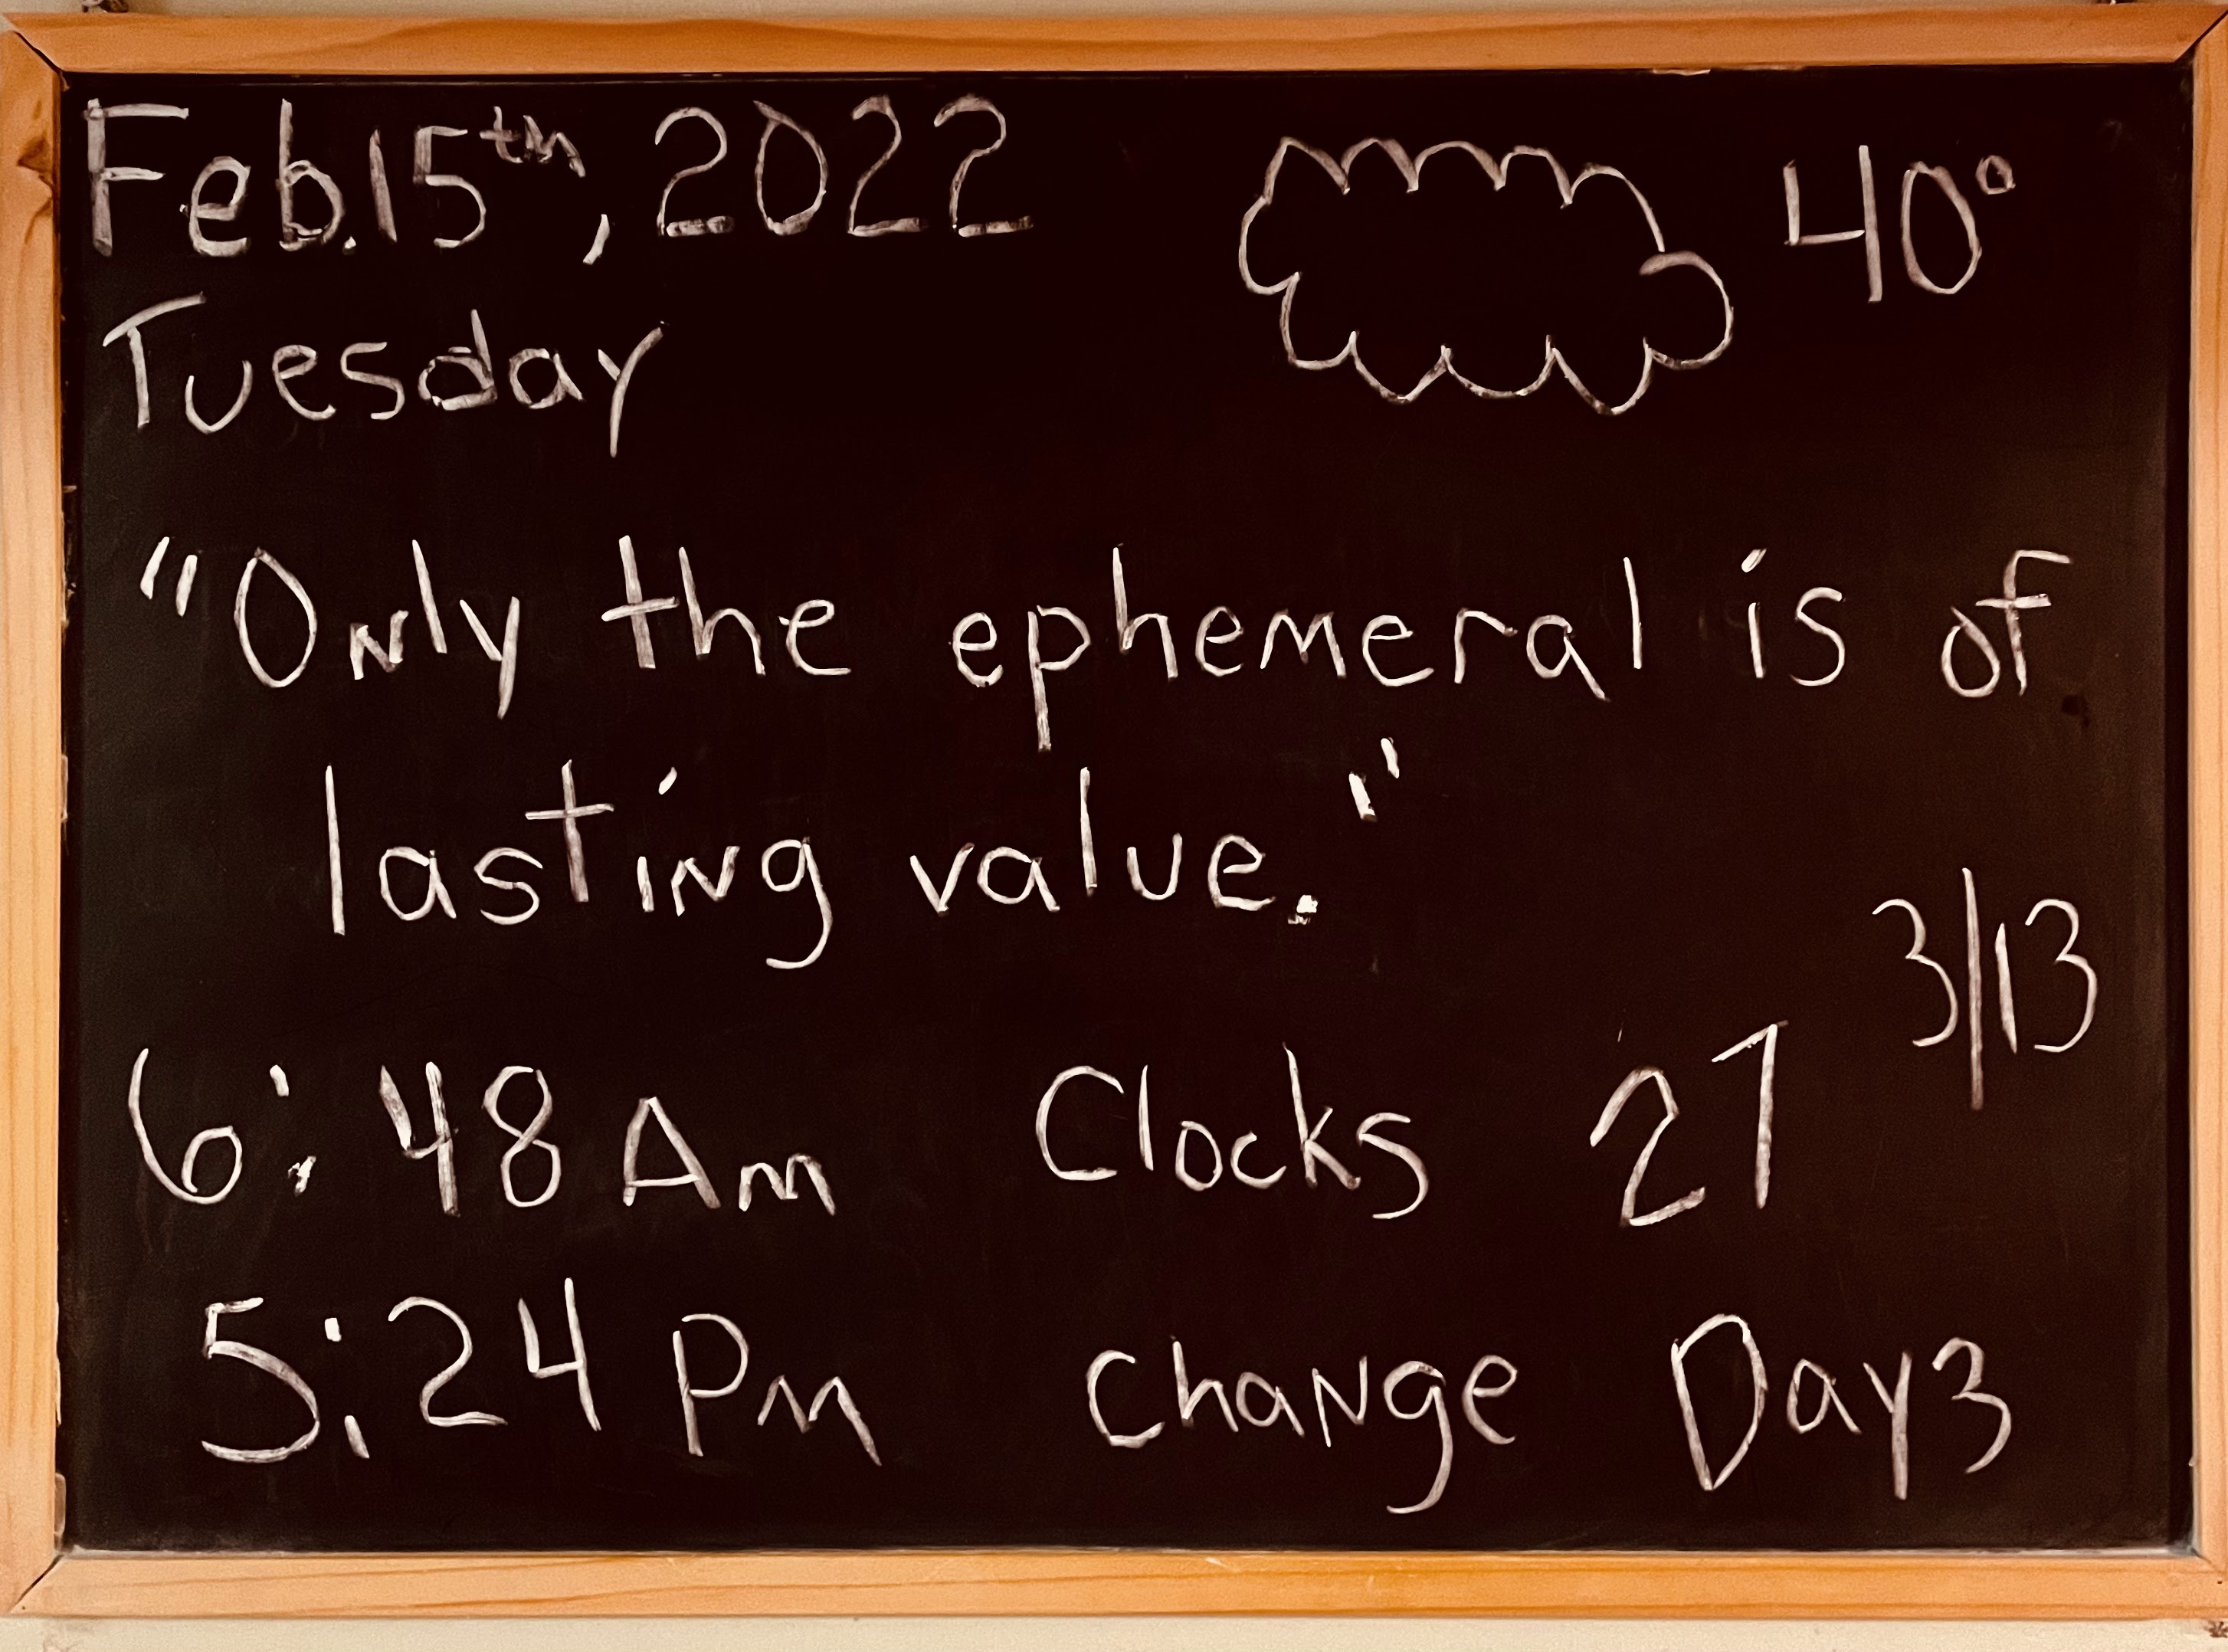 Feb. 15th, 2022 40°
Tuesday
"Only the ephemeral is of
lasting value."
3/13
6:48 Am Clocks 27
5:24 Pm change Day3